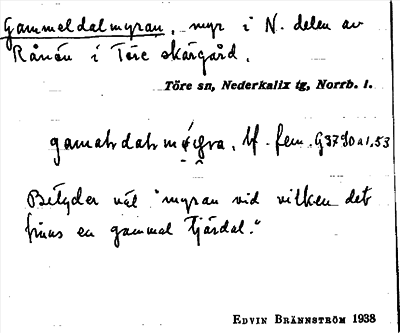 Gammeldalmyran, myr i N. delen av
Rånön i Töre skärgård.
Töre sn, Nederkalix tg, Norrb. l.
bf. fem.
Betyder väl "myran vid vilken det
finns en gammal tjärdal."
EDVIN BRÄNNSTRÖM 1938